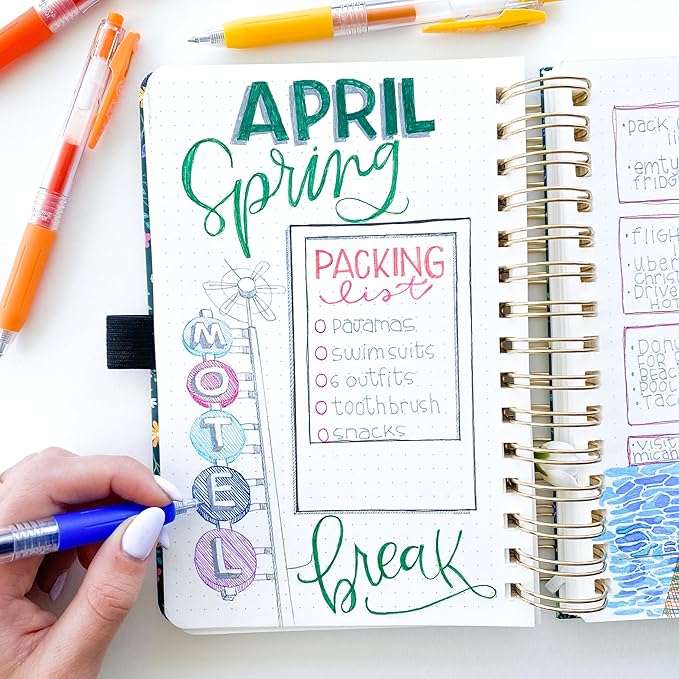 APRIL
Spring
PACKING
list
pajamas
swimsuits
6 outfits
toothbrush
snacks
MOTEL
break
• pack
• emty
fridg
fligh
• uber
christ
• Drive
Hot
• Donu
for b
• Beac
• Pool
• Taco
• visit
mican